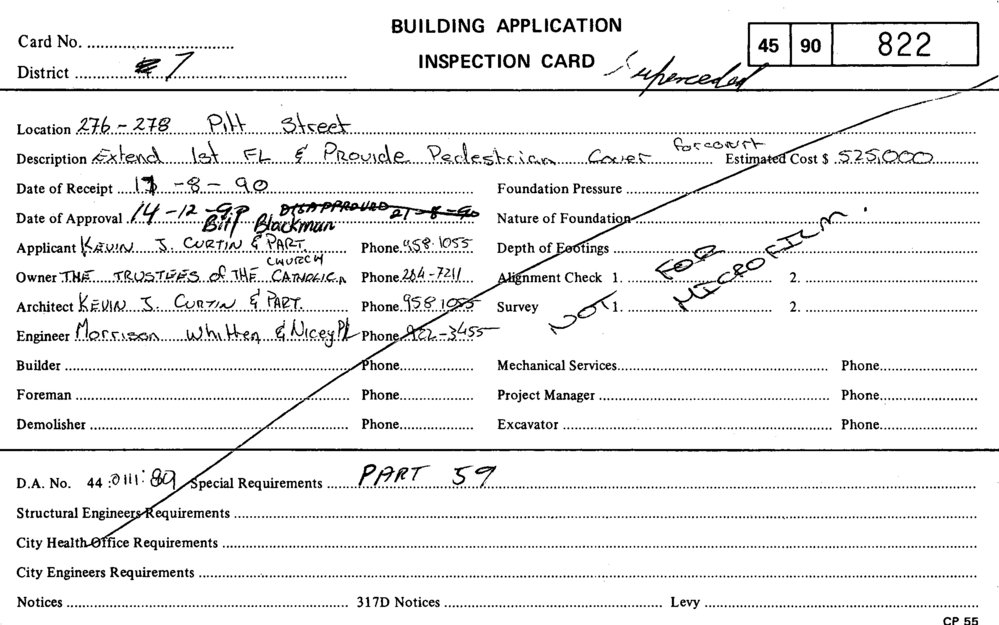 BUILDING APPLICATION
INSPECTION CARD
Card No.
District 7
45 90 822
Superceded
Location 276-278 Pitt Street
Description Extend 1st FL & Provide Pedestrian Cover forecourt Estimated Cost $ 525,000
Date of Receipt 13 -8-90 Foundation Pressure
Date of Approval 14-12-90 DISAPPROVED 21-8-90 Nature of Foundation
Bill Blackman
Applicant KEVIN J. CURTIN & PART. Phone 958.1055 Depth of Footings
Owner THE TRUSTEES of THE CATHOLIC CHURCH Phone 264-7211 Alignment Check 1. 2.
Architect KEVIN J. CURTIN & PART. Phone 958 1055 Survey 1. 2.
NOT FOR MICROFILM.
Engineer Morrison Whitten & Nicey P/L Phone 922-3455
Builder Phone Mechanical Services Phone
Foreman Phone Project Manager Phone
Demolisher Phone Excavator Phone
D.A. No. 44 :0111: 89 Special Requirements PART 59
Structural Engineers Requirements
City Health Office Requirements
City Engineers Requirements
Notices 317D Notices Levy
CP 55